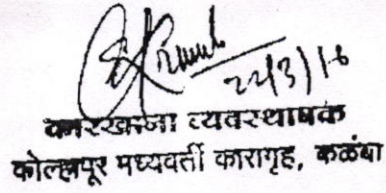 22/3/16
कारखाना व्यवस्थापक
कोल्हापूर मध्यवर्ती कारागृह, कळंबा